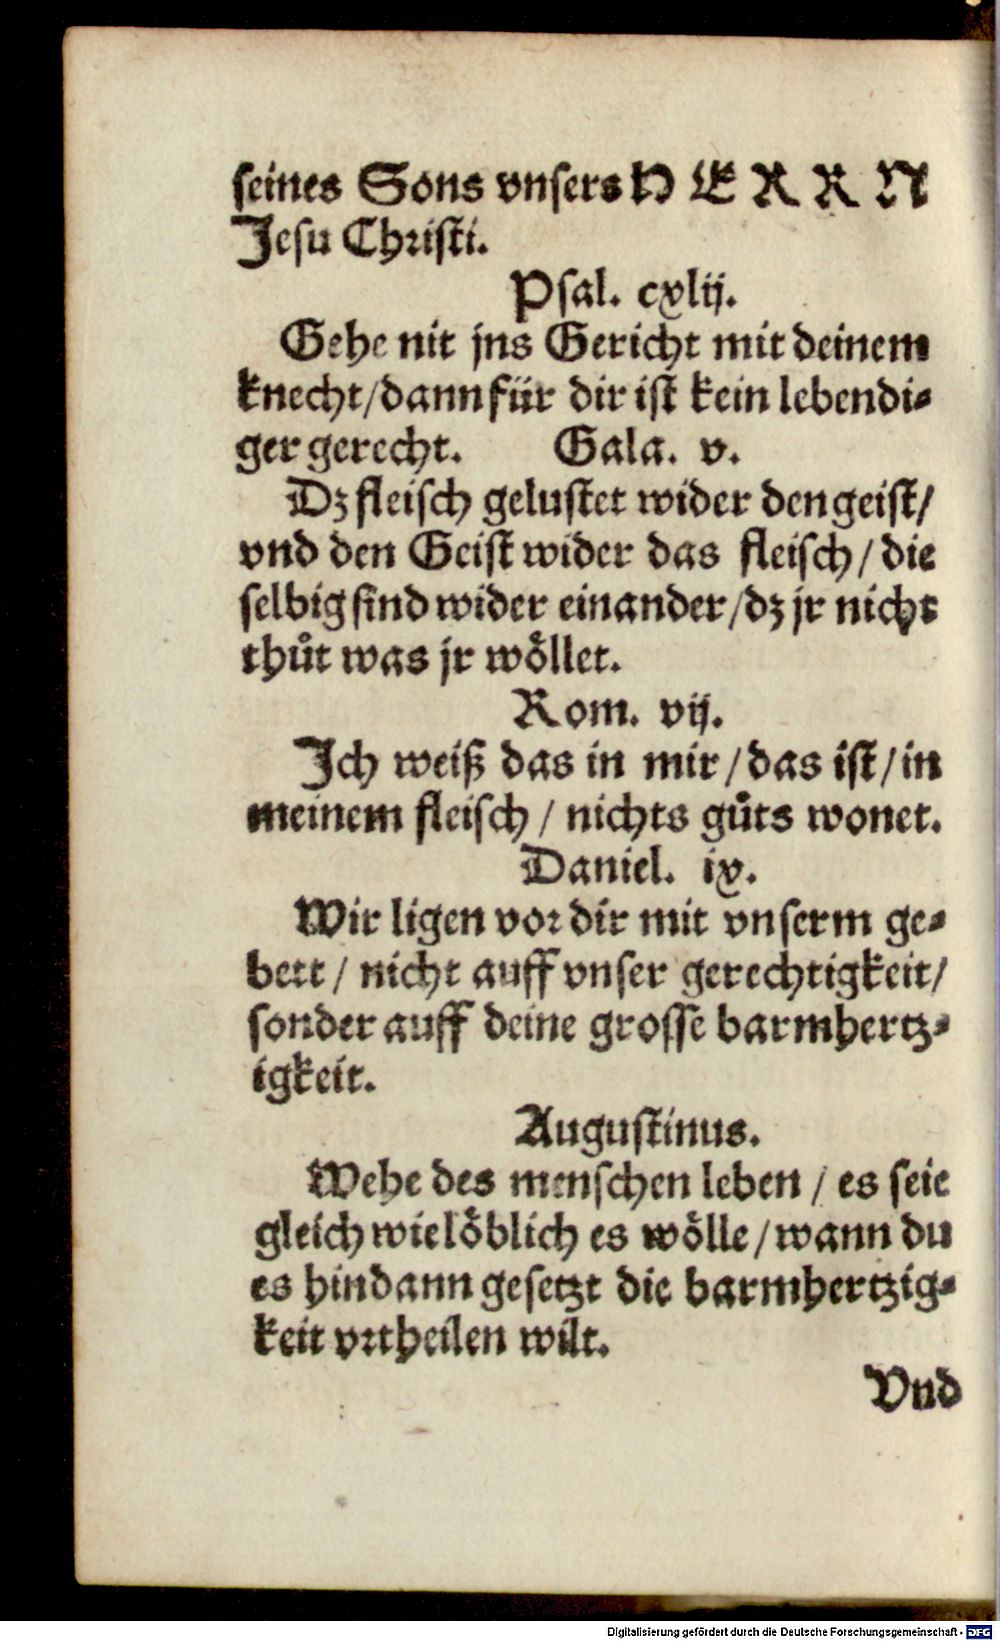 seines Sons vnsers H E R R N
Jesu Christi.
Psal. cxlij.
Gehe nit jns Gericht mit deinem
knecht/dann für dir ist kein lebendi-
ger gerecht. Gala. v.
Dz fleisch gelustet wider den geist/
vnd den Geist wider das fleisch/ die
selbig sind wider einander/dz jr nicht
thůt was jr wöllet.
Rom. vij.
Ich weiß das in mir/das ist/in
meinem fleisch/ nichts gůts wonet.
Daniel. ix.
Wir ligen vor dir mit vnserm ge-
bett/ nicht auff vnser gerechtigkeit/
sonder auff deine grosse barmhertz-
igkeit.
Augustinus.
Wehe des menschen leben/ es seie
gleich wie löblich es wölle/wann du
es hindann gesetzt die barmhertzig-
keit vrtheilen wilt.
Vnd
Digitalisierung gefördert durch die Deutsche Forschungsgemeinschaft - DFG